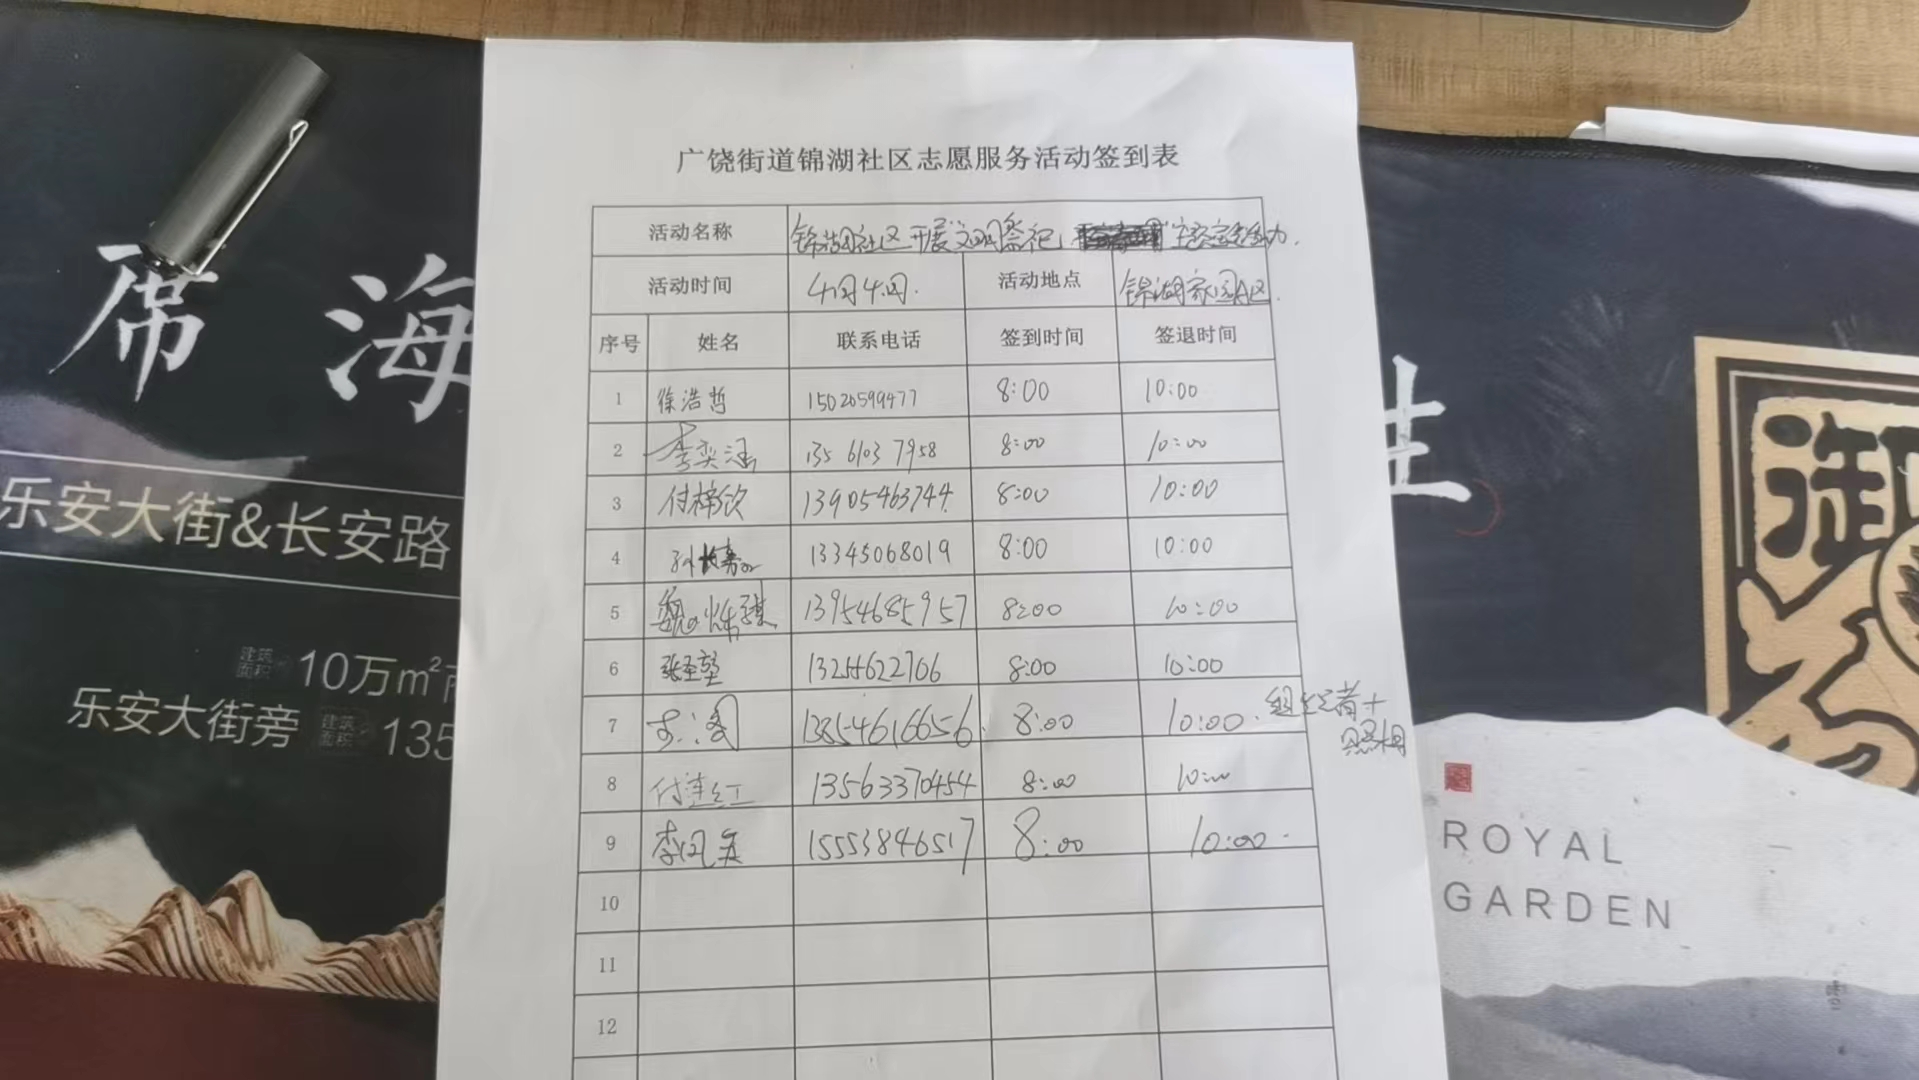 广饶街道锦湖社区志愿服务活动签到表
活动名称 锦湖社区开展"文明祭祀
活动时间 4月4日. 活动地点 锦湖家园A区.
序号 姓名 联系电话 签到时间 签退时间
1 徐浩哲 15020599477 8:00 10:00
2 李奕涵 135 6103 7958 8:00 10:00
3 付梓欣 13905463744 8:00 10:00
4 13345068019 8:00 10:00
5 魏 13954685957 8:00 10:00
6 8:00 10:00
7 13854616656 8:00 10:00. 组织者+
照相
8 付连红 13563370454 8:00 10:00
9 李凤 15553846517 8:00 10:00.
10
11
12
席 海
乐安大街&长安路
建筑面积 10万m²
乐安大街旁 建筑面积 135
御
ROYAL
GARDEN